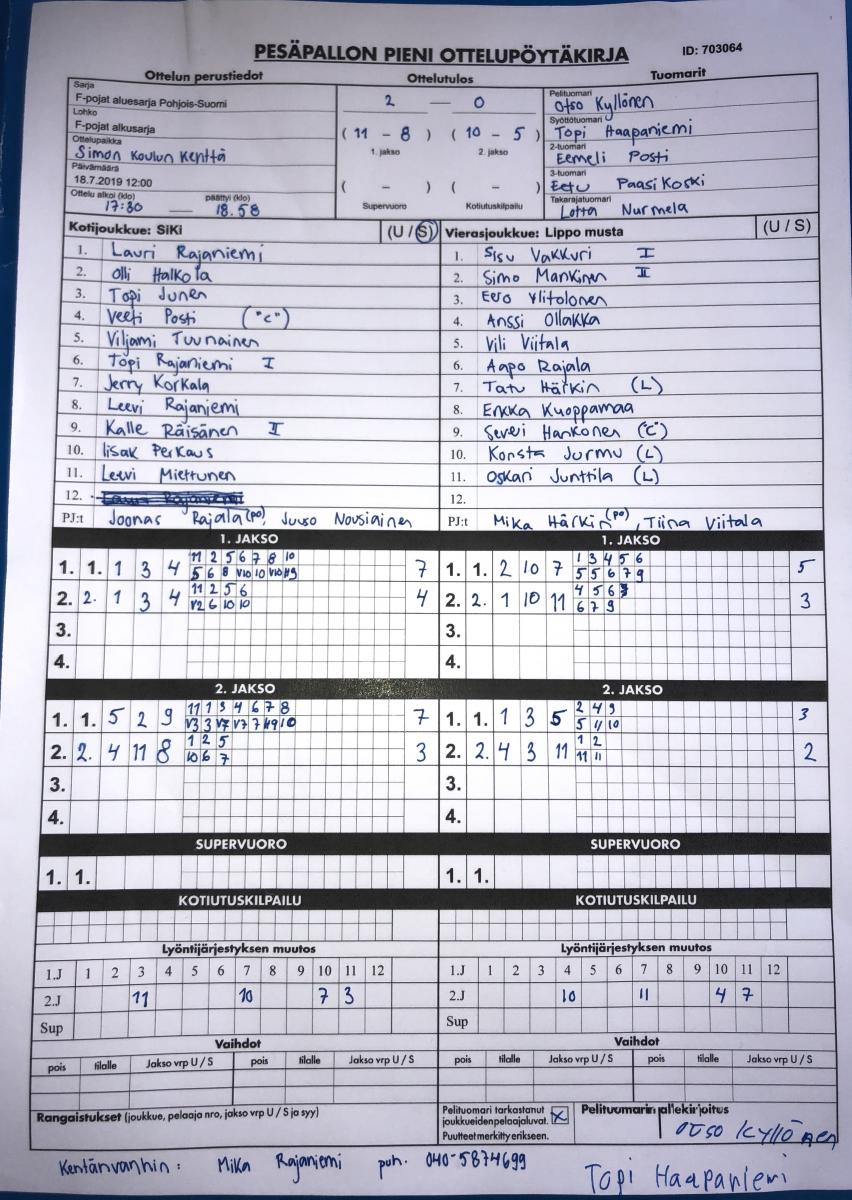 PESÄPALLON PIENI OTTELUPÖYTÄKIRJA
ID: 703064
Ottelun perustiedot
Sarja
F-pojat aluesarja Pohjois-Suomi
Lohko
F-pojat alkusarja
Ottelupaikka
Simon Koulun Kenttä
Päivämäärä
18.7.2019 12:00
Ottelu alkoi (klo) päättyi (klo)
17:30 — 18.58
Ottelutulos
2 — 0
( 11 - 8 ) ( 10 - 5 )
1. jakso 2. jakso
( - ) ( - )
Supervuoro Kotiutuskilpailu
Tuomarit
Pelituomari
Otso Kyllönen
Syöttötuomari
Topi Haapaniemi
2-tuomari
Eemeli Posti
3-tuomari
Eetu Paasikoski
Takarajatuomari
Lotta Nurmela
Kotijoukkue: SiKi (U / S)
1. Lauri Rajaniemi
2. Olli Halkola
3. Topi Junen
4. Veeti Posti ("c")
5. Viljami Tuunainen
6. Topi Rajaniemi I
7. Jerry Korkala
8. Leevi Rajaniemi
9. Kalle Räisänen II
10. Iisak Perkaus
11. Leevi Miettunen
12.
PJ:t Joonas Rajala (po), Juuso Nousiainen
Vierasjoukkue: Lippo musta (U / S)
1. Sisu Vakkuri I
2. Simo Mankinen II
3. Eero Ylitolonen
4. Anssi Ollakka
5. Vili Viitala
6. Aapo Rajala
7. Tatu Härkin (L)
8. Erkka Kuoppamaa
9. Severi Hankonen ("C")
10. Konsta Jurmu (L)
11. Oskari Junttila (L)
12.
PJ:t Mika Härkin (po), Tiina Viitala
1. JAKSO
11 2 5 6 7 8 10
1. 1. 1 3 4 7
5 6 8 V10 10 V10 #9
11 2 5 6
2. 2. 1 3 4 4
V2 6 10 10
3.
4.
1. JAKSO
1 3 4 5 6
1. 1. 2 10 7 5
5 5 6 7 9
4 5 6
2. 2. 1 10 11 3
6 7 9
3.
4.
2. JAKSO
11 1 3 4 6 7 8
1. 1. 5 2 9 7
V3 3 V7 V7 7 #9 10
1 2 5
2. 2. 4 11 8 3
10 6 7
3.
4.
2. JAKSO
2 4 9
1. 1. 1 3 5 3
5 11 10
1 2
2. 2. 4 3 11 2
11 11
3.
4.
SUPERVUORO
1. 1.
SUPERVUORO
1. 1.
KOTIUTUSKILPAILU
KOTIUTUSKILPAILU
Lyöntijärjestyksen muutos
1.J 1 2 3 4 5 6 7 8 9 10 11 12
2.J 11 10 7 3
Sup
Lyöntijärjestyksen muutos
1.J 1 2 3 4 5 6 7 8 9 10 11 12
2.J 10 11 4 7
Sup
Vaihdot
pois tilalle Jakso vrp U / S pois tilalle Jakso vrp U / S
Vaihdot
pois tilalle Jakso vrp U / S pois tilalle Jakso vrp U / S
Rangaistukset (joukkue, pelaaja nro, jakso vrp U / S ja syy)
Pelituomari tarkastanut
joukkueiden pelaajaluvat. X
Puutteet merkitty erikseen.
Pelituomarin allekirjoitus
OTSO KYLLÖNEN
Kentänvanhin: Mika Rajaniemi puh. 040-5874699
Topi Haapaniemi